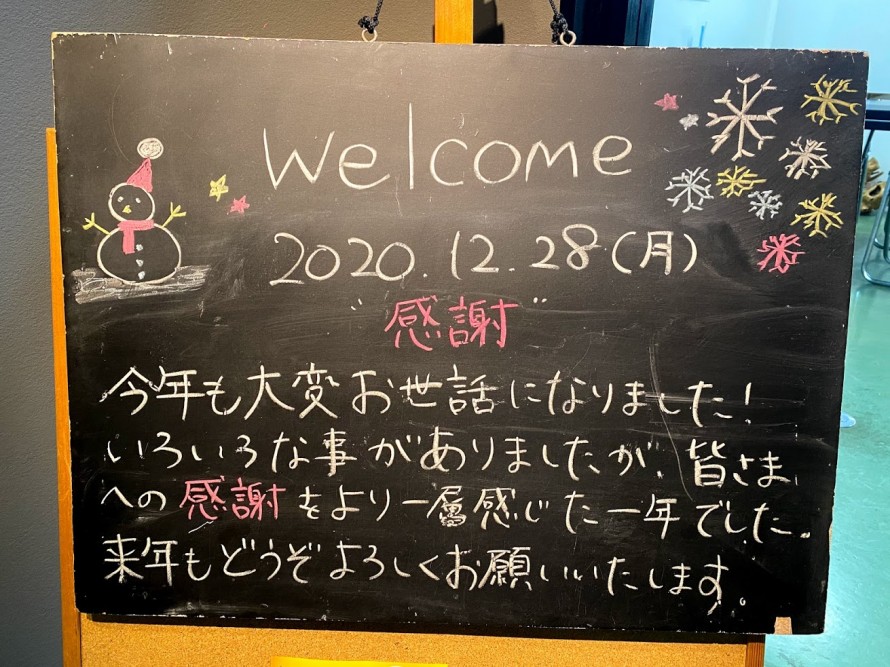 Welcome
2020.12.28(月)
"感謝"
今年も大変お世話になりました!
いろいろな事がありましたが、皆さま
への感謝をより一層感じた一年でした。
来年もどうぞよろしくお願いいたします。